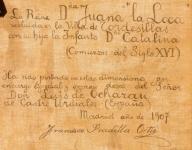 La Reine Dña Juana "la Loca"
recluida en la Villa de Tordesillas
con su hija la Infanta Dª Catalina
(Comienzos del Siglo XVI)
Ha sido pintado en estas dimensiones por
encargo y para y como pieza del Señor
Don Luis de Ocharan
de Castro Urdiales (España)
Madrid año de 1907
Francisco Pradilla Ortiz